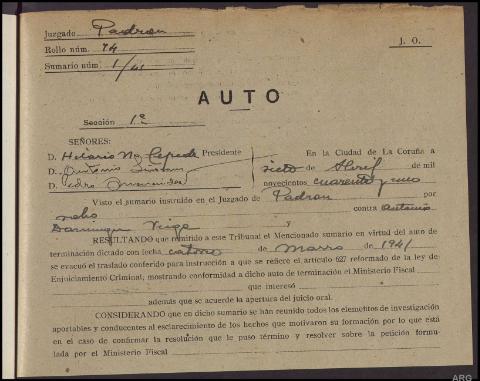 Juzgado Padron
Rollo núm. 74
Sumario núm. 1/41
J. O.
AUTO
Sección 1ª
SEÑORES:
D. Hilario Presidente
D. Antonio
D. Pedro
En la Ciudad de La Coruña a
siete de Abril de mil
novecientos cuarenta y uno
Visto el sumario instruido en el Juzgado de Padron por
robo contra Antonio
Dominguez Veiga y
RESULTANDO que remitido a este Tribunal el Mencionado sumario en virtud del auto de
terminación dictado con fecha catorce de Marzo de 1941
se evacuó el traslado conferido para instrucción a que se refiere el artículo 627 reformado de la ley de
Enjuiciamiento Criminal, mostrando conformidad a dicho auto de terminación el Ministerio Fiscal
que interesó
además que se acuerde la apertura del juicio oral.
CONSIDERANDO que en dicho sumario se han reunido todos los elementos de investigación
aportables y conducentes al esclarecimiento de los hechos que motivaron su formación por lo que está
en el caso de confirmar la resolución que le puso término y resolver sobre la petición formu-
lada por el Ministerio Fiscal
ARG